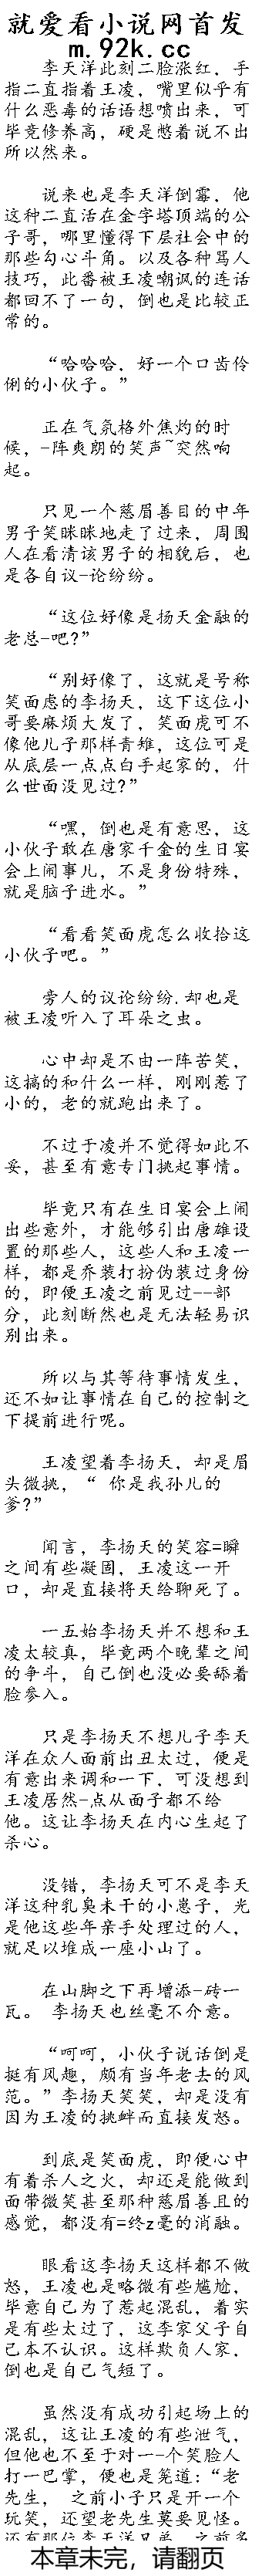 就爱看小说网首发
m.92k.cc
李天洋此刻二脸涨红，手
指二直指着王凌，嘴里似乎有
什么恶毒的话语想喷出来，可
毕竟修养高，硬是憋着说不出
所以然来。
说来也是李天洋倒霉，他
这种二直活在金字塔顶端的公
子哥，哪里懂得下层社会中的
那些勾心斗角。以及各种骂人
技巧，此番被王凌嘲讽的连话
都回不了一句，倒也是比较正
常的。
“哈哈哈，好一个口齿伶
俐的小伙子。”
正在气氛格外焦灼的时
候，-阵爽朗的笑声~突然响
起。
只见一个慈眉善目的中年
男子笑眯眯地走了过来，周围
人在看清该男子的相貌后，也
是各自议-论纷纷。
“这位好像是扬天金融的
老总-吧?”
“别好像了，这就是号称
笑面虑的李扬天，这下这位小
哥要麻烦大发了，笑面虎可不
像他儿子那样青雉，这位可是
从底层一点点白手起家的，什
么世面没见过?”
“嘿，倒也是有意思，这
小伙子敢在唐家千金的生日宴
会上闹事儿，不是身份特殊，
就是脑子进水。”
“看看笑面虎怎么收拾这
小伙子吧。”
旁人的议论纷纷.却也是
被王凌听入了耳朵之虫。
心中却是不由一阵苦笑，
这搞的和什么一样，刚刚惹了
小的，老的就跑出来了。
不过于凌并不觉得如此不
妥，甚至有意专门挑起事情。
毕竟只有在生日宴会上闹
出些意外，才能够引出唐雄设
置的那些人，这些人和王凌一
样，都是乔装打扮伪装过身份
的，即便王凌之前见过--部
分，此刻断然也是无法轻易识
别出来。
所以与其等待事情发生，
还不如让事情在自己的控制之
下提前进行呢。
王凌望着李扬天，却是眉
头微挑，“ 你是我孙儿的
爹?”
闻言，李扬天的笑容=瞬
之间有些凝固，王凌这一开
口，却是直接将天给聊死了。
一五始李扬天并不想和王
凌太较真，毕竟两个晚辈之间
的争斗，自己倒也没必要舔着
脸参入。
只是李扬天不想儿子李天
洋在众人面前出丑太过，便是
有意出来调和一下，可没想到
王凌居然-点从面子都不给
他。这让李扬天在内心生起了
杀心。
没错，李扬天可不是李天
洋这种乳臭未干的小崽子，光
是他这些年亲手处理过的人，
就足以堆成一座小山了。
在山脚之下再增添-砖一
瓦。 李扬天也丝毫不介意。
“呵呵，小伙子说话倒是
挺有风趣，颇有当年老去的风
范。”李扬天笑笑，却是没有
因为王凌的挑衅而直接发怒。
到底是笑面虎，即便心中
有着杀人之火，却还是能做到
面带微笑甚至那种慈眉善且的
感觉，都没有=终z毫的消融。
眼看这李扬天这样都不做
怒，王凌也是略微有些尴尬，
毕意自己为了惹起混乱，着实
是有些太过了，这李家父子自
己本不认识。这样欺负人家，
倒也是自己气短了。
虽然没有成功引起场上的
混乱，这让王凌的有些泄气，
但他也不至于对一-个笑脸人
打一巴掌，便也是笼道:“老
先生， 之前小子只是开一个
玩笑，还望老先生莫要见怪。
还有那位李天洋兄弟，之前多
本章未完，请翻页